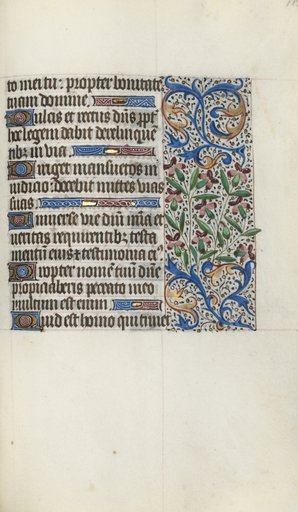 to mei tu: propter bonitatē
tuam domine.
Dulcis et rectus dn̄s ꝓpt̄
hoc legem dabit delinquē
tibꝫ in via.
Diriget mansuetos in
iudicio: docebit mittes vias
suas.
Uniuerse vie dn̄i mīa et
ueritas requirentibꝫ testa
mentū eius et testimonia eīꝰ
Propter nomē tuū dn̄e
propiciaberis peccato meo
multum est enim.
Quis est homo qui timet